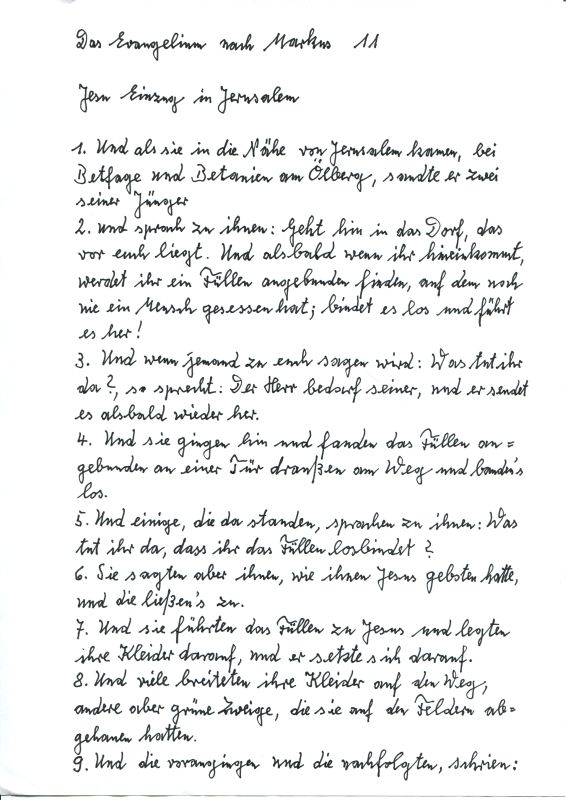 Das Evangelium nach Markus 11
Jesu Einzug in Jerusalem
1. Und als sie in die Nähe von Jerusalem kamen, bei
Betfage und Betanien am Ölberg, sandte er zwei
seiner Jünger
2. und sprach zu ihnen: Geht hin in das Dorf, das
vor euch liegt. Und alsbald wenn ihr hineinkommt,
werdet ihr ein Füllen angebunden finden, auf dem noch
nie ein Mensch gesessen hat; bindet es los und führt
es her!
3. Und wenn jemand zu euch sagen wird: Was tut ihr
da?, so sprecht: Der Herr bedarf seiner, und er sendet
es alsbald wieder her.
4. Und sie gingen hin und fanden das Füllen an=
gebunden an einer Tür draußen am Weg und banden's
los.
5. Und einige, die da standen, sprachen zu ihnen: Was
tut ihr da, dass ihr das Füllen losbindet?
6. Sie sagten aber ihnen, wie ihnen Jesus geboten hatte,
und die ließen's zu.
7. Und sie führten das Füllen zu Jesus und legten
ihre Kleider darauf, und er setzte sich darauf.
8. Und viele breiteten ihre Kleider auf den Weg,
andere aber grüne Zweige, die sie auf den Feldern ab=
gehauen hatten.
9. Und die vorangingen und die nachfolgten, schrien: